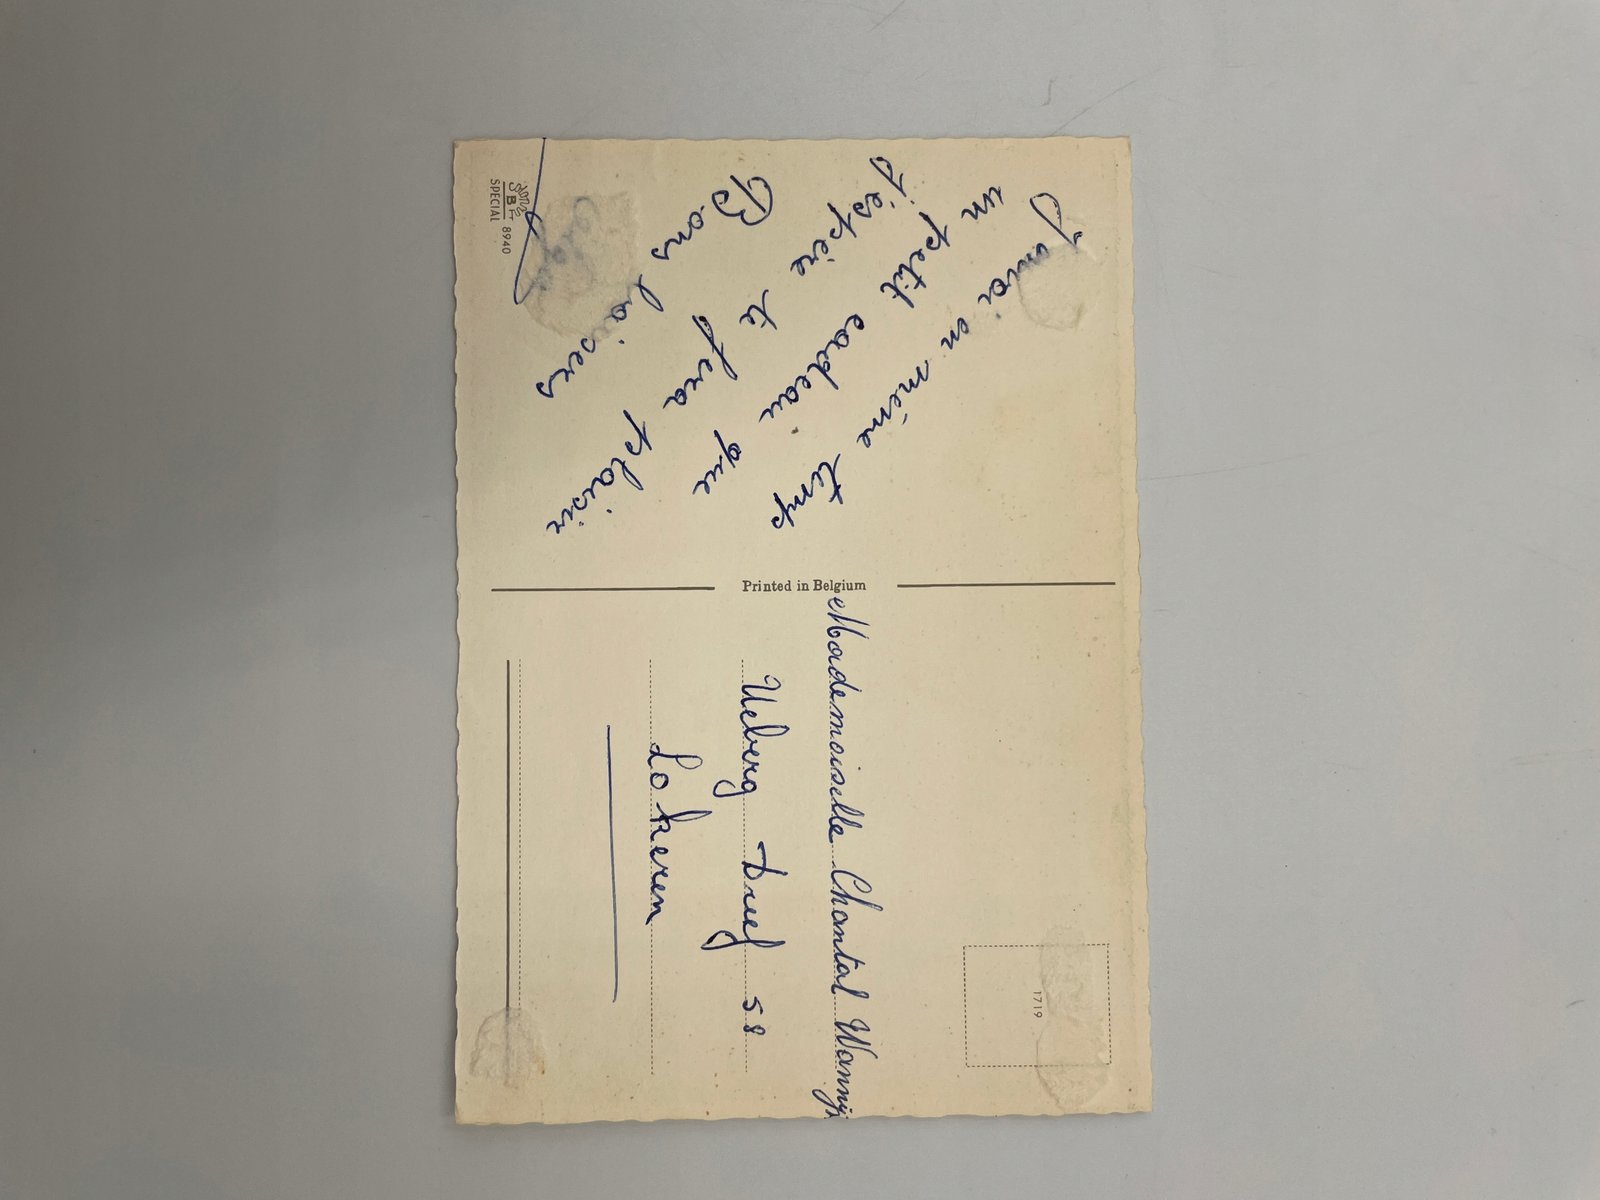 J'envoi en même temps
un petit cadeau que
j'espère te fera plaisir
Bons baisers
SBP
SPECIAL 8940
Printed in Belgium
1719
Mademoiselle Chantal
Ueberg Dreef 58
Lokeren